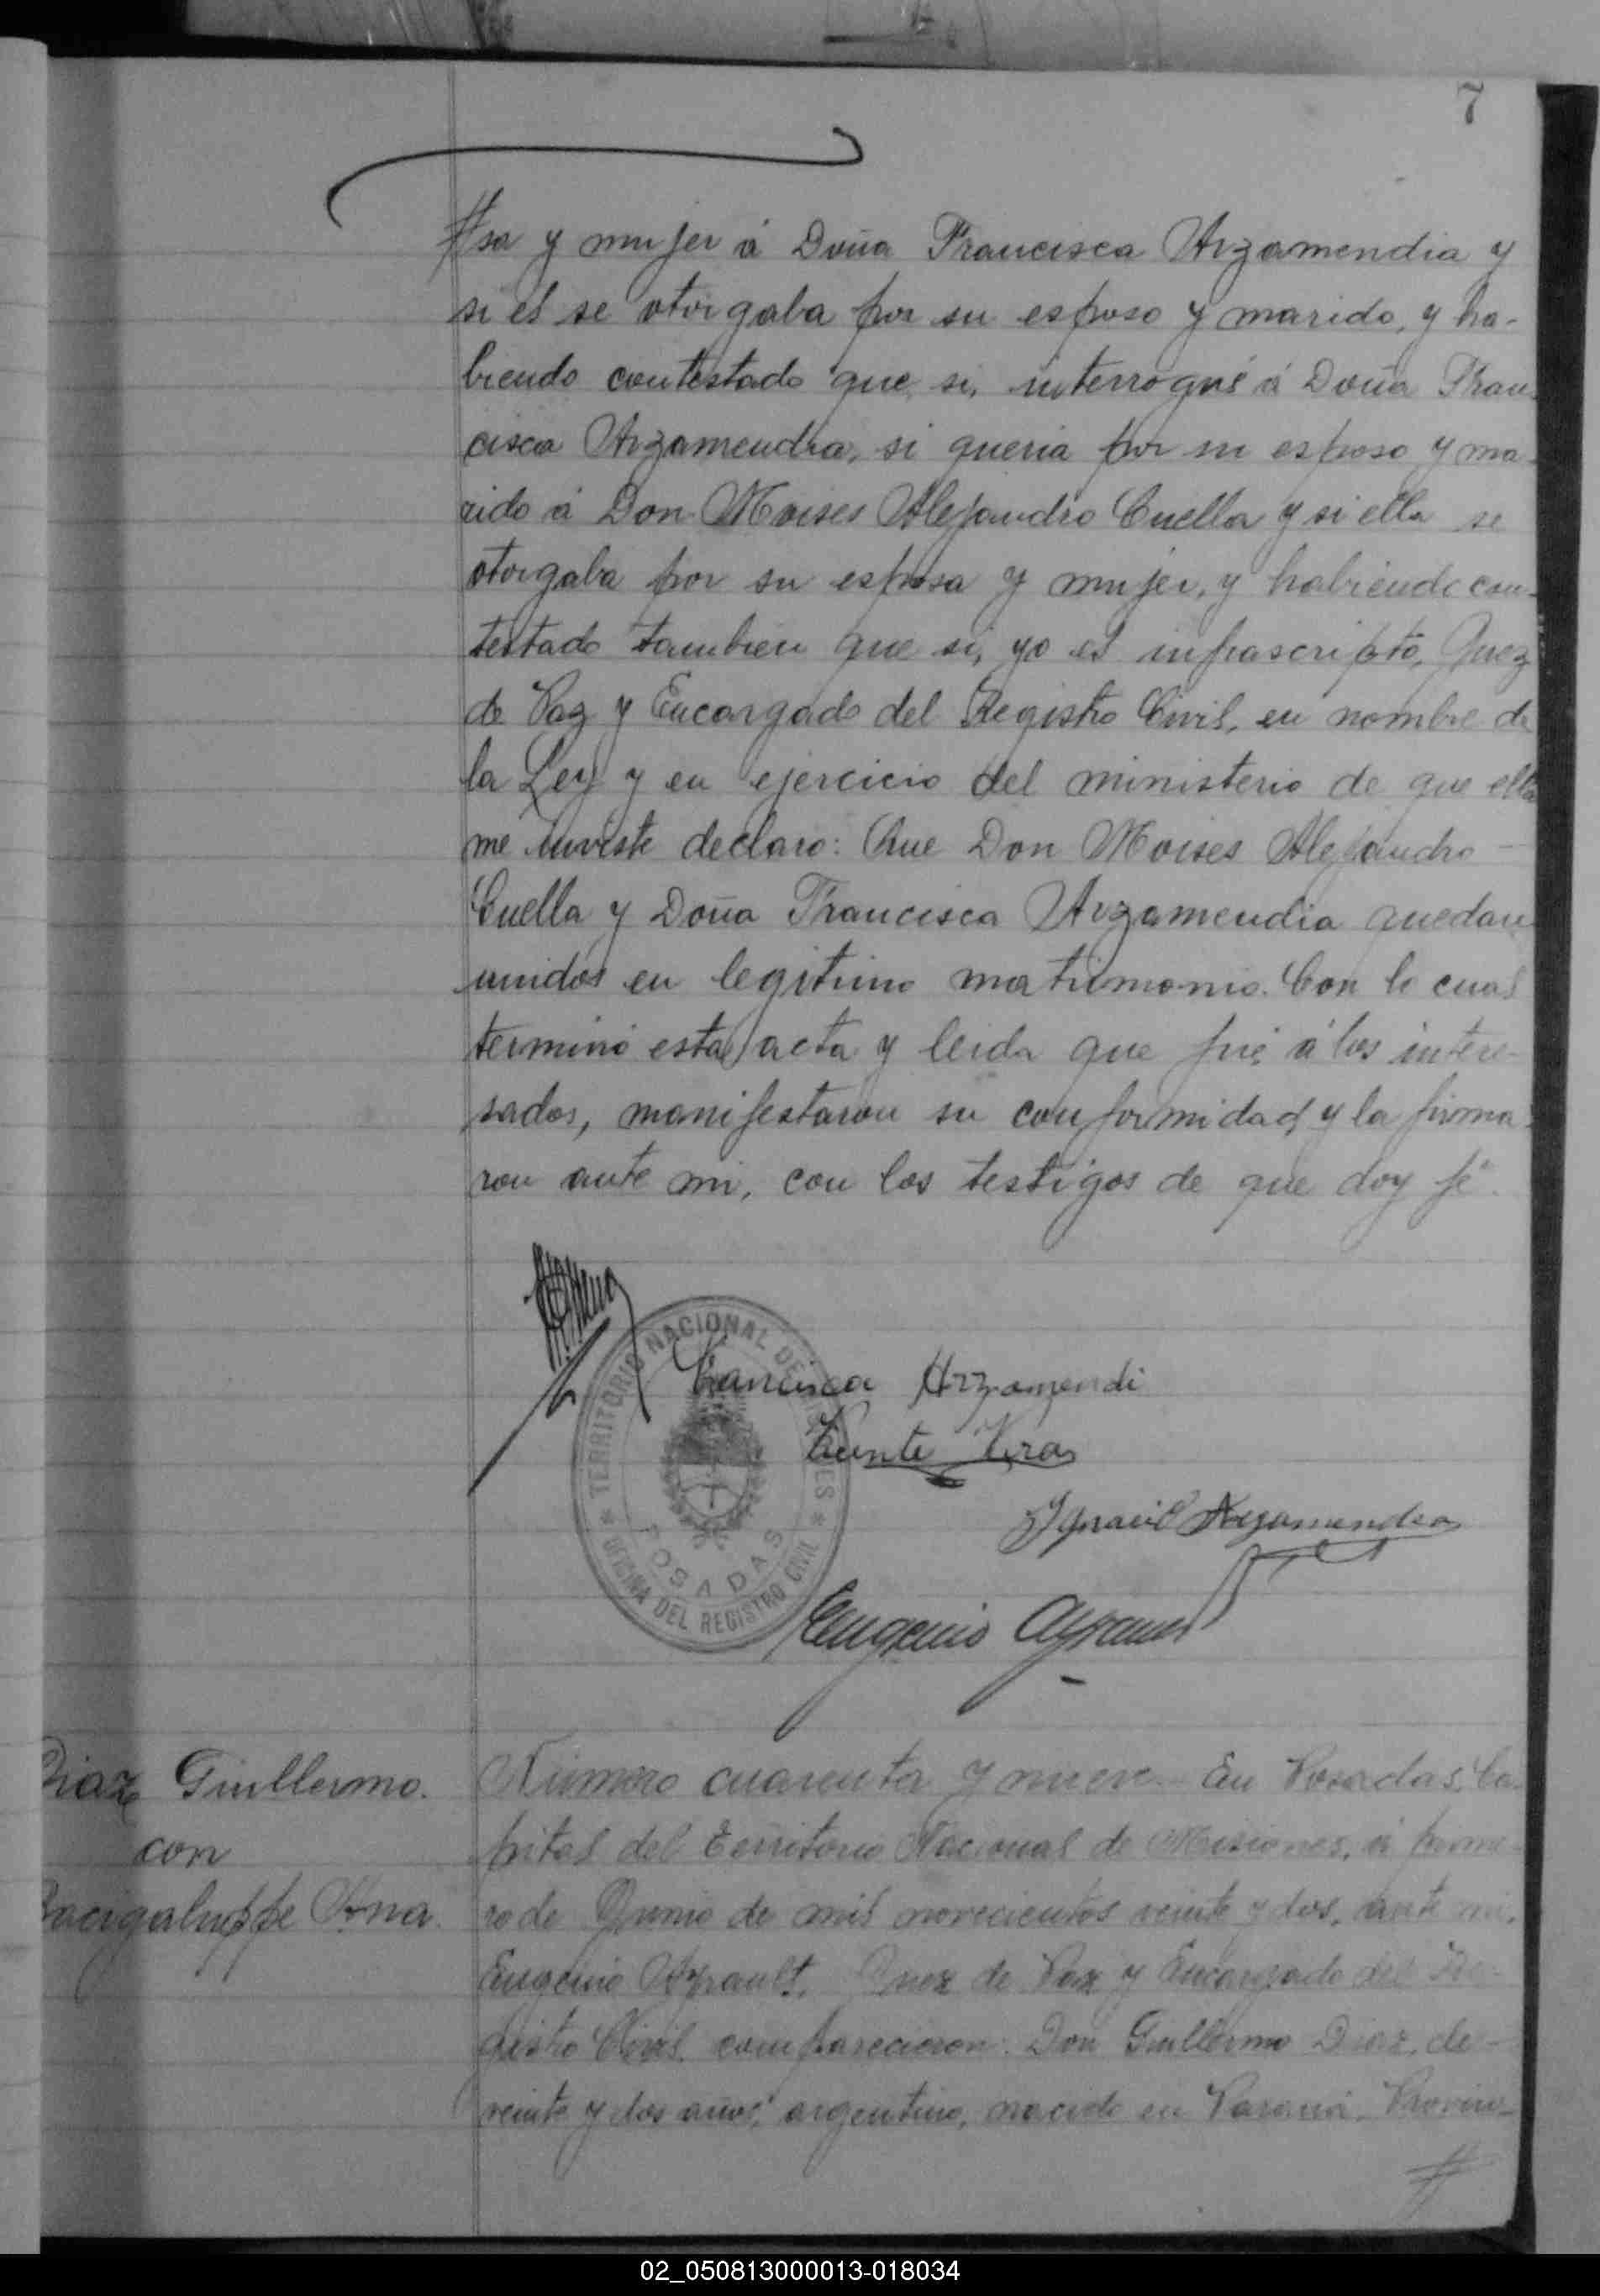 7
#sa y mujer á Doña Francisca Arzamendia y
si el se otorgaba por su esposo y marido, y ha-
biendo contestado que si, interrogué á Doña Fran-
cisca Arzamendia, si queria por su esposo y ma-
rido á Don Moises Alejandro Cuella y si ella se
otorgaba por su esposa y mujer, y habiendo con-
testado tambien que si, yo el infrascripto, Juez
de Paz y Encargado del Registro Civil, en nombre de
la Ley y en ejercicio del ministerio de que ella
me inviste declaro: Que Don Moises Alejandro -
Cuella y Doña Francisca Arzamendia quedan
unidos en legitimo matrimonio. Con lo cual
terminó esta acta y leida que fué á los intere-
sados, manifestaron su conformidad y la firma-
ron ante mi, con los testigos de que doy fé.
TERRITORIO NACIONAL DE MISIONES
POSADAS
OFICINA DEL REGISTRO CIVIL
Francisca Arzamendi
Vicente Vera
Ignacio Arzamendia
Eugenio Ayrault
Diaz Guillermo.
con
Bacigaluppe Ana.
Número cuarenta y nueve. En Posadas, Ca-
pital del Territorio Nacional de Misiones, á prime-
ro de Junio de mil novecientos veinte y dos, ante mi,
Eugenio Ayrault, Juez de Paz y Encargado del Re-
gistro Civil, comparecieron: Don Guillermo Diaz, de -
veinte y dos años, argentino, nacido en Paraná, Provin-
#
02_050813000013-018034